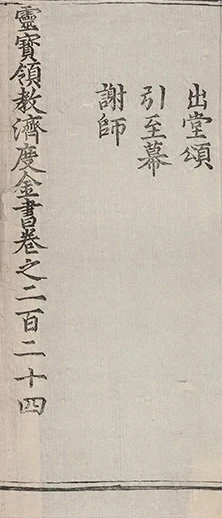 出堂頌
引至幕
謝師
靈寶領教濟度金書卷之二百二十四